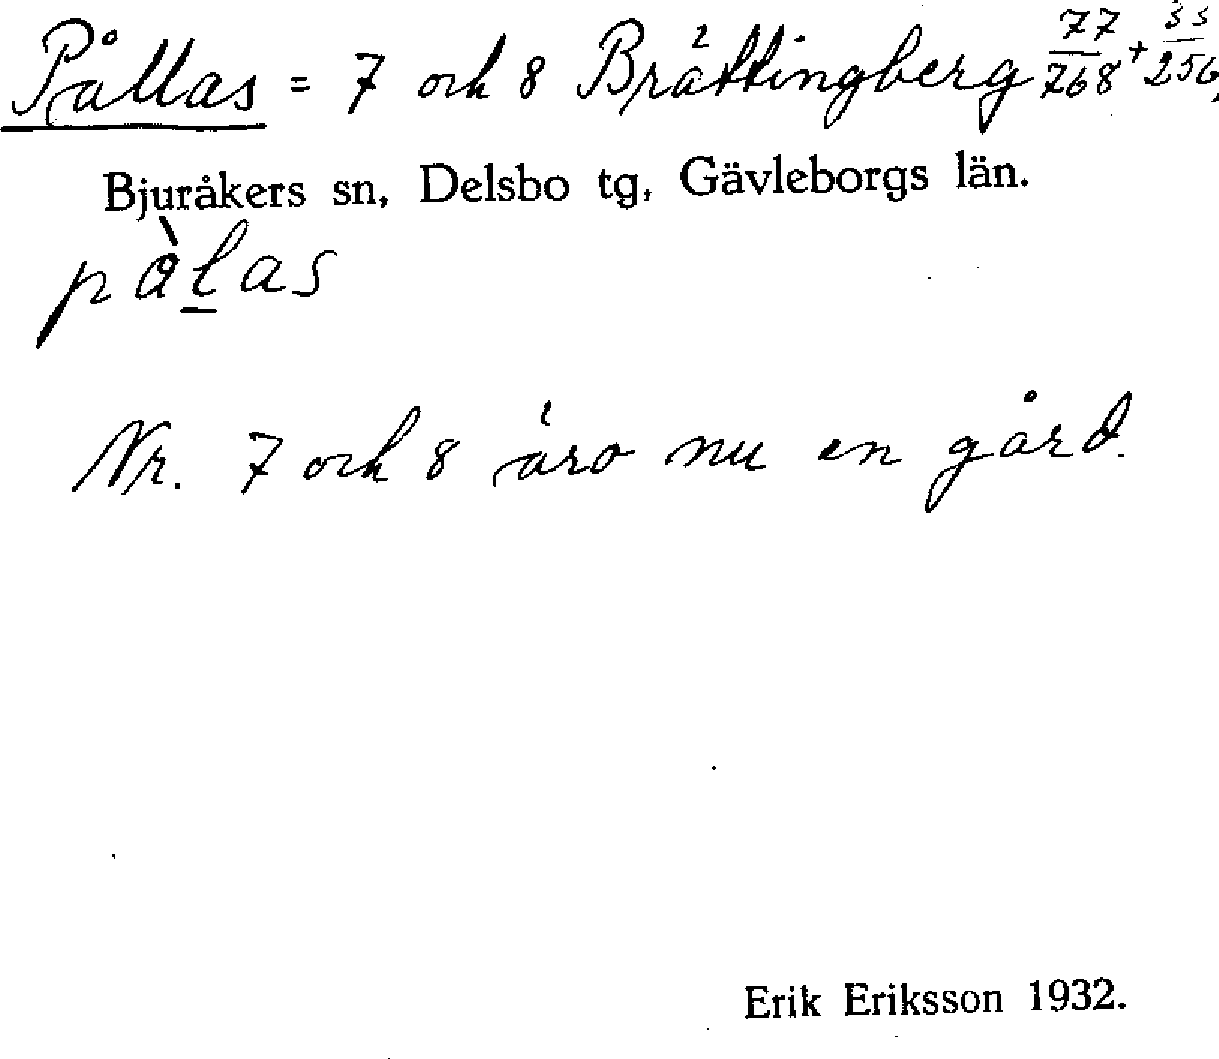 Pållas = 7 och 8 Brättingberg 77/768 + 55/256,
Bjuråkers sn, Delsbo tg, Gävleborgs län.
pålas
Nr. 7 och 8 äro nu en gård.
Erik Eriksson 1932.